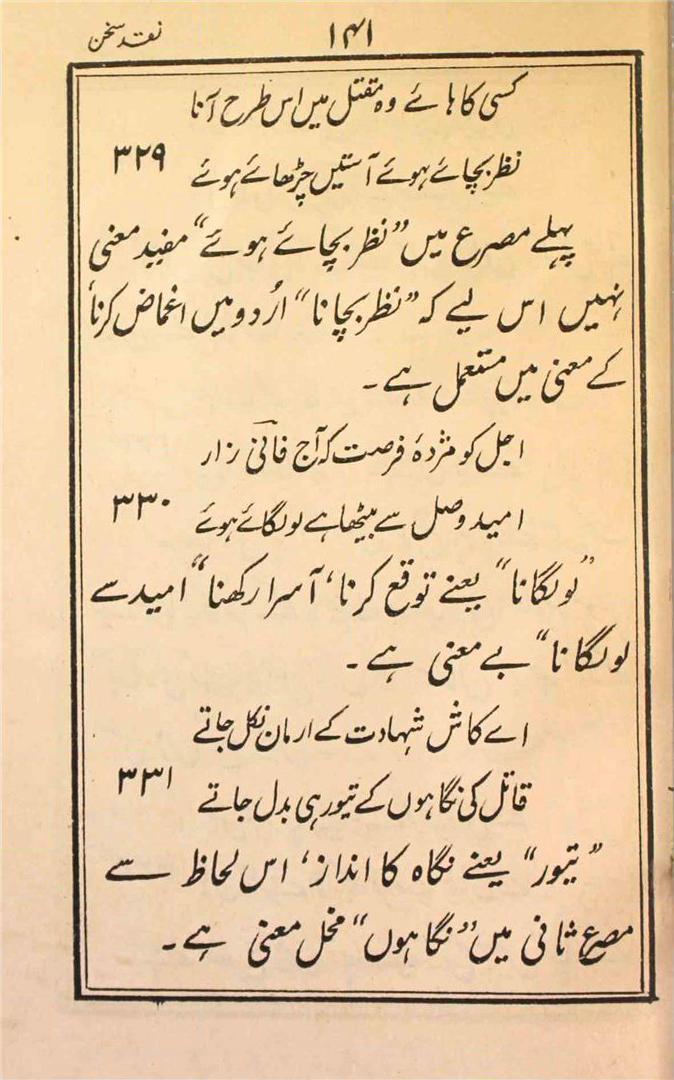 نقد سخن
۱۴۱
کسی کا ہائے وہ مقتل میں اس طرح آنا
نظر بچائے ہوئے آستیں چڑھائے ہوئے ۳۲۹
پہلے مصرع میں ”نظر بچائے ہوئے“ مفید معنی
نہیں اس لیے کہ ”نظر بچانا“ اُردو میں اغماض کرنا
کے معنی میں مستعمل ہے۔
اجل کو مژدۂ فرصت کہ آج فانیؔ زار
امید وصل سے بیٹھا ہے لو لگائے ہوئے ۳۳۰
”لو لگانا“ یعنے توقع کرنا، آسرا رکھنا“ امید سے
لو لگانا“ بے معنی ہے۔
اے کاش شہادت کے ارمان نکل جاتے
قاتل کی نگاہوں کے تیور ہی بدل جاتے ۳۳۱
”تیور“ یعنے نگاہ کا انداز، اس لحاظ سے
مصرع ثانی میں ”نگاہوں“ مخل معنی ہے۔